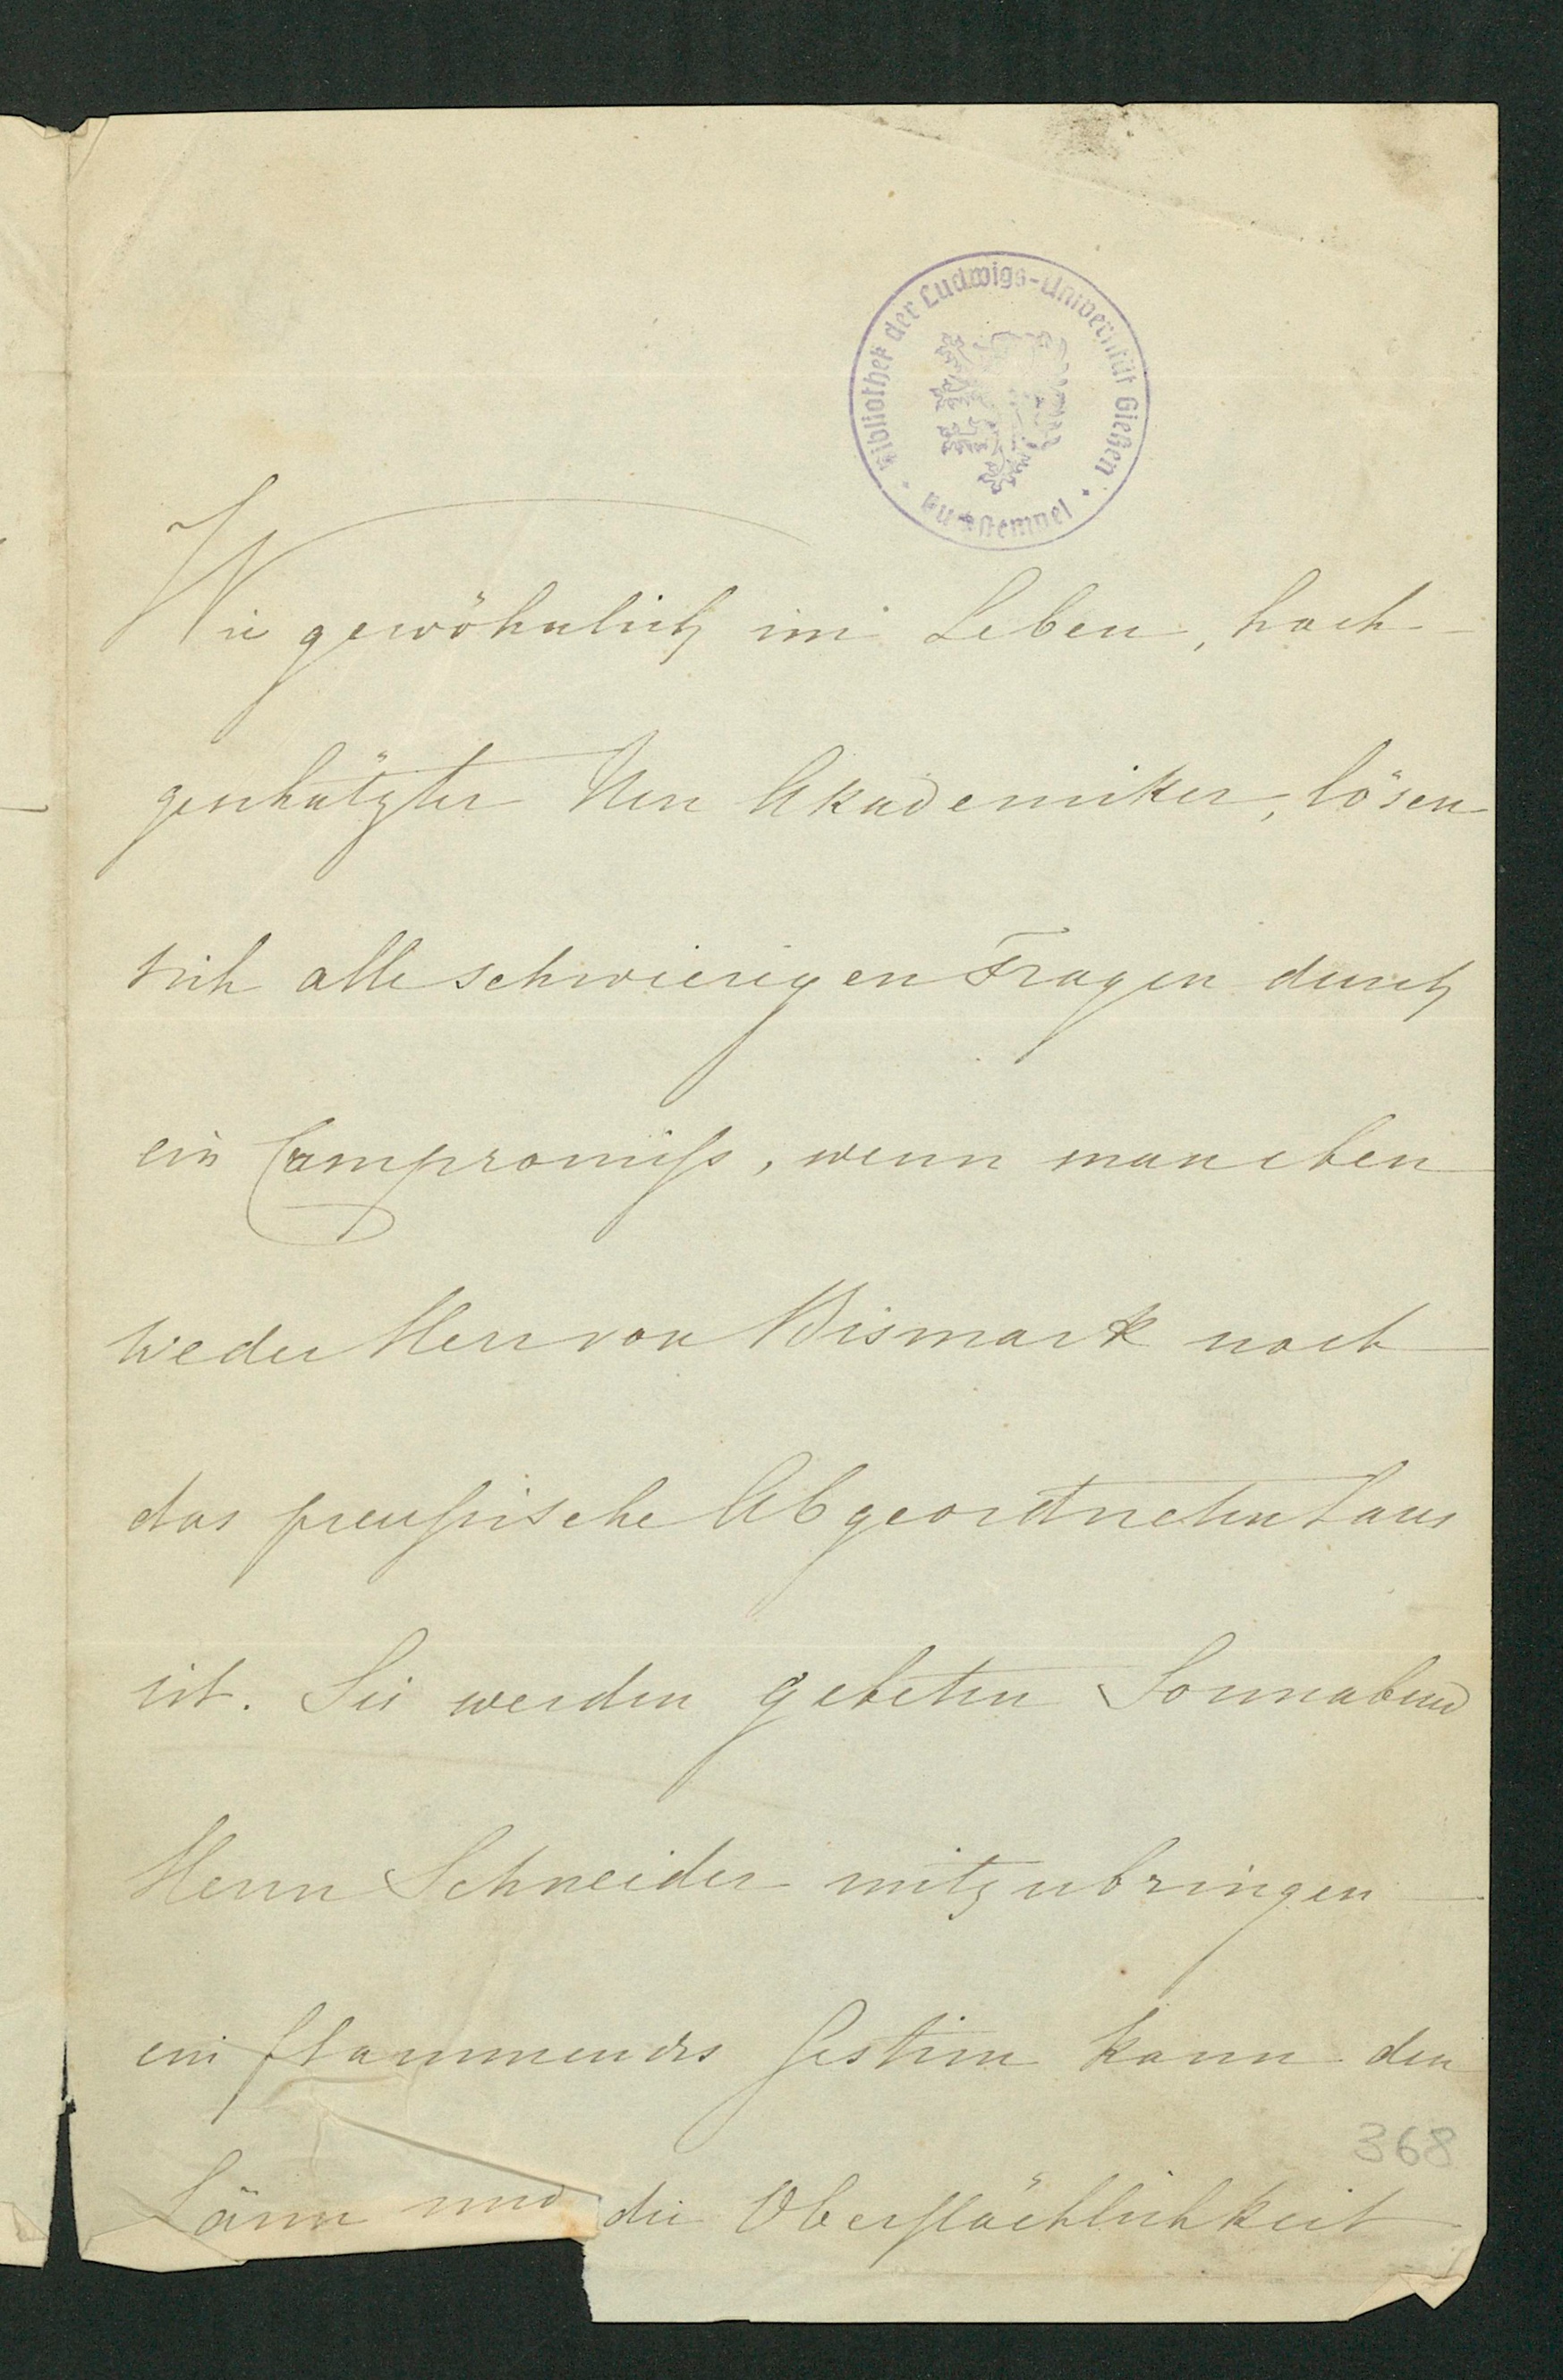 Bibliothek der Ludwigs-Universität Gießen
Wie gewöhnlich im Leben, hoch-
geschätzter Herr Akademiker, lösen
sich alle schwierigen Fragen durch
ein Compromiß, wenn man eben
weder Herr von Bismark noch
das preußische Abgeordnetenhaus
ist. Sie werden gebeten Sonnabend
Herrn Schneider mitzubringen
ein flammendes Gestirn kann den
Lärm und die Oberflächlichkeit
368